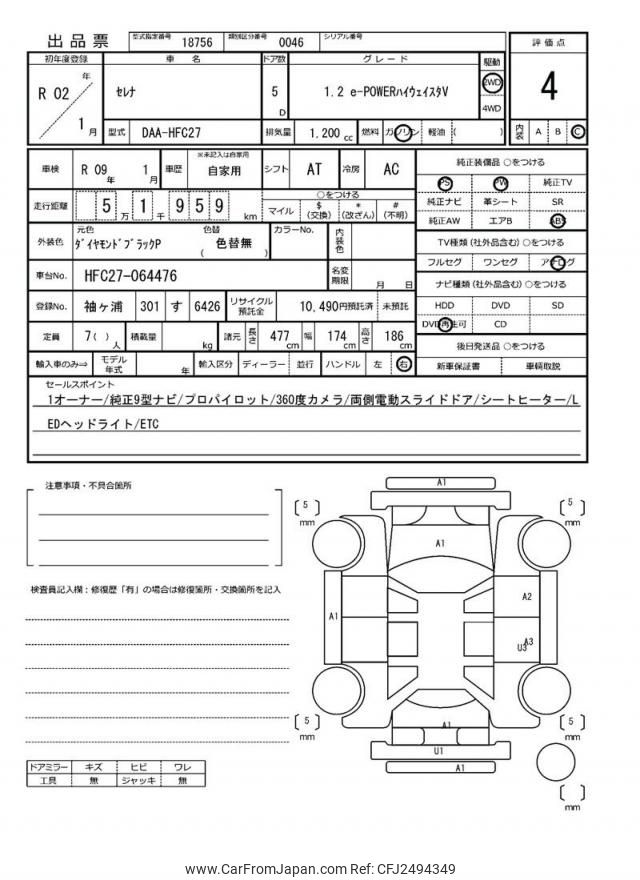 出品票 型式指定番号 18756 類別区分番号 0046 シリアル番号
初年度登録 車名 ドア数 グレード 駆動 評価点
R 02 年 1 月 セレナ 5 D 1.2 e-POWERハイウェイスタV 2WD 4WD 4
型式 DAA-HFC27 排気量 1.200 cc 燃料 ガソリン 軽油 ( ) 内装 A B C
車検 R 09 年 1 月 車歴 ※未記入は自家用 自家用 シフト AT 冷房 AC
走行距離 5 万 1 千 9 5 9 km ○をつける マイル $ (交換) * (改ざん) # (不明)
外装色 元色 ダイヤモンドブラックP 色替 色替無 ( ) カラーNo. 内装色
車台No. HFC27-064476 名変期限 月 日
登録No. 袖ヶ浦 301 す 6426 リサイクル預託金 10,490円預託済 未預託
定員 7( ) 人 積載量 kg 諸元 長さ 477 cm 幅 174 cm 高さ 186 cm
輸入車のみ⇒ モデル年式 年 輸入区分 ディーラー 並行 ハンドル 左 右
純正装備品 ○をつける
PS PW 純正TV
純正ナビ 革シート SR
純正AW エアB ABS
TV種類 (社外品含む) ○をつける
フルセグ ワンセグ アナログ
ナビ種類 (社外品含む) ○をつける
HDD DVD SD
DVD再生可 CD
後日発送品 ○をつける
新車保証書 車輌取説
セールスポイント
1オーナー/純正9型ナビ/プロパイロット/360度カメラ/両側電動スライドドア/シートヒーター/L
EDヘッドライト/ETC
注意事項・不具合箇所
検査員記入欄：修復歴「有」の場合は修復箇所・交換箇所を記入
ドアミラー キズ ヒビ ワレ
工具 無 ジャッキ 無
A1
5 mm
5 mm
A1
A1
A2
A3
U3
5 mm
5 mm
A1
U1
A1
mm
www.CarFromJapan.com Ref: CFJ2494349